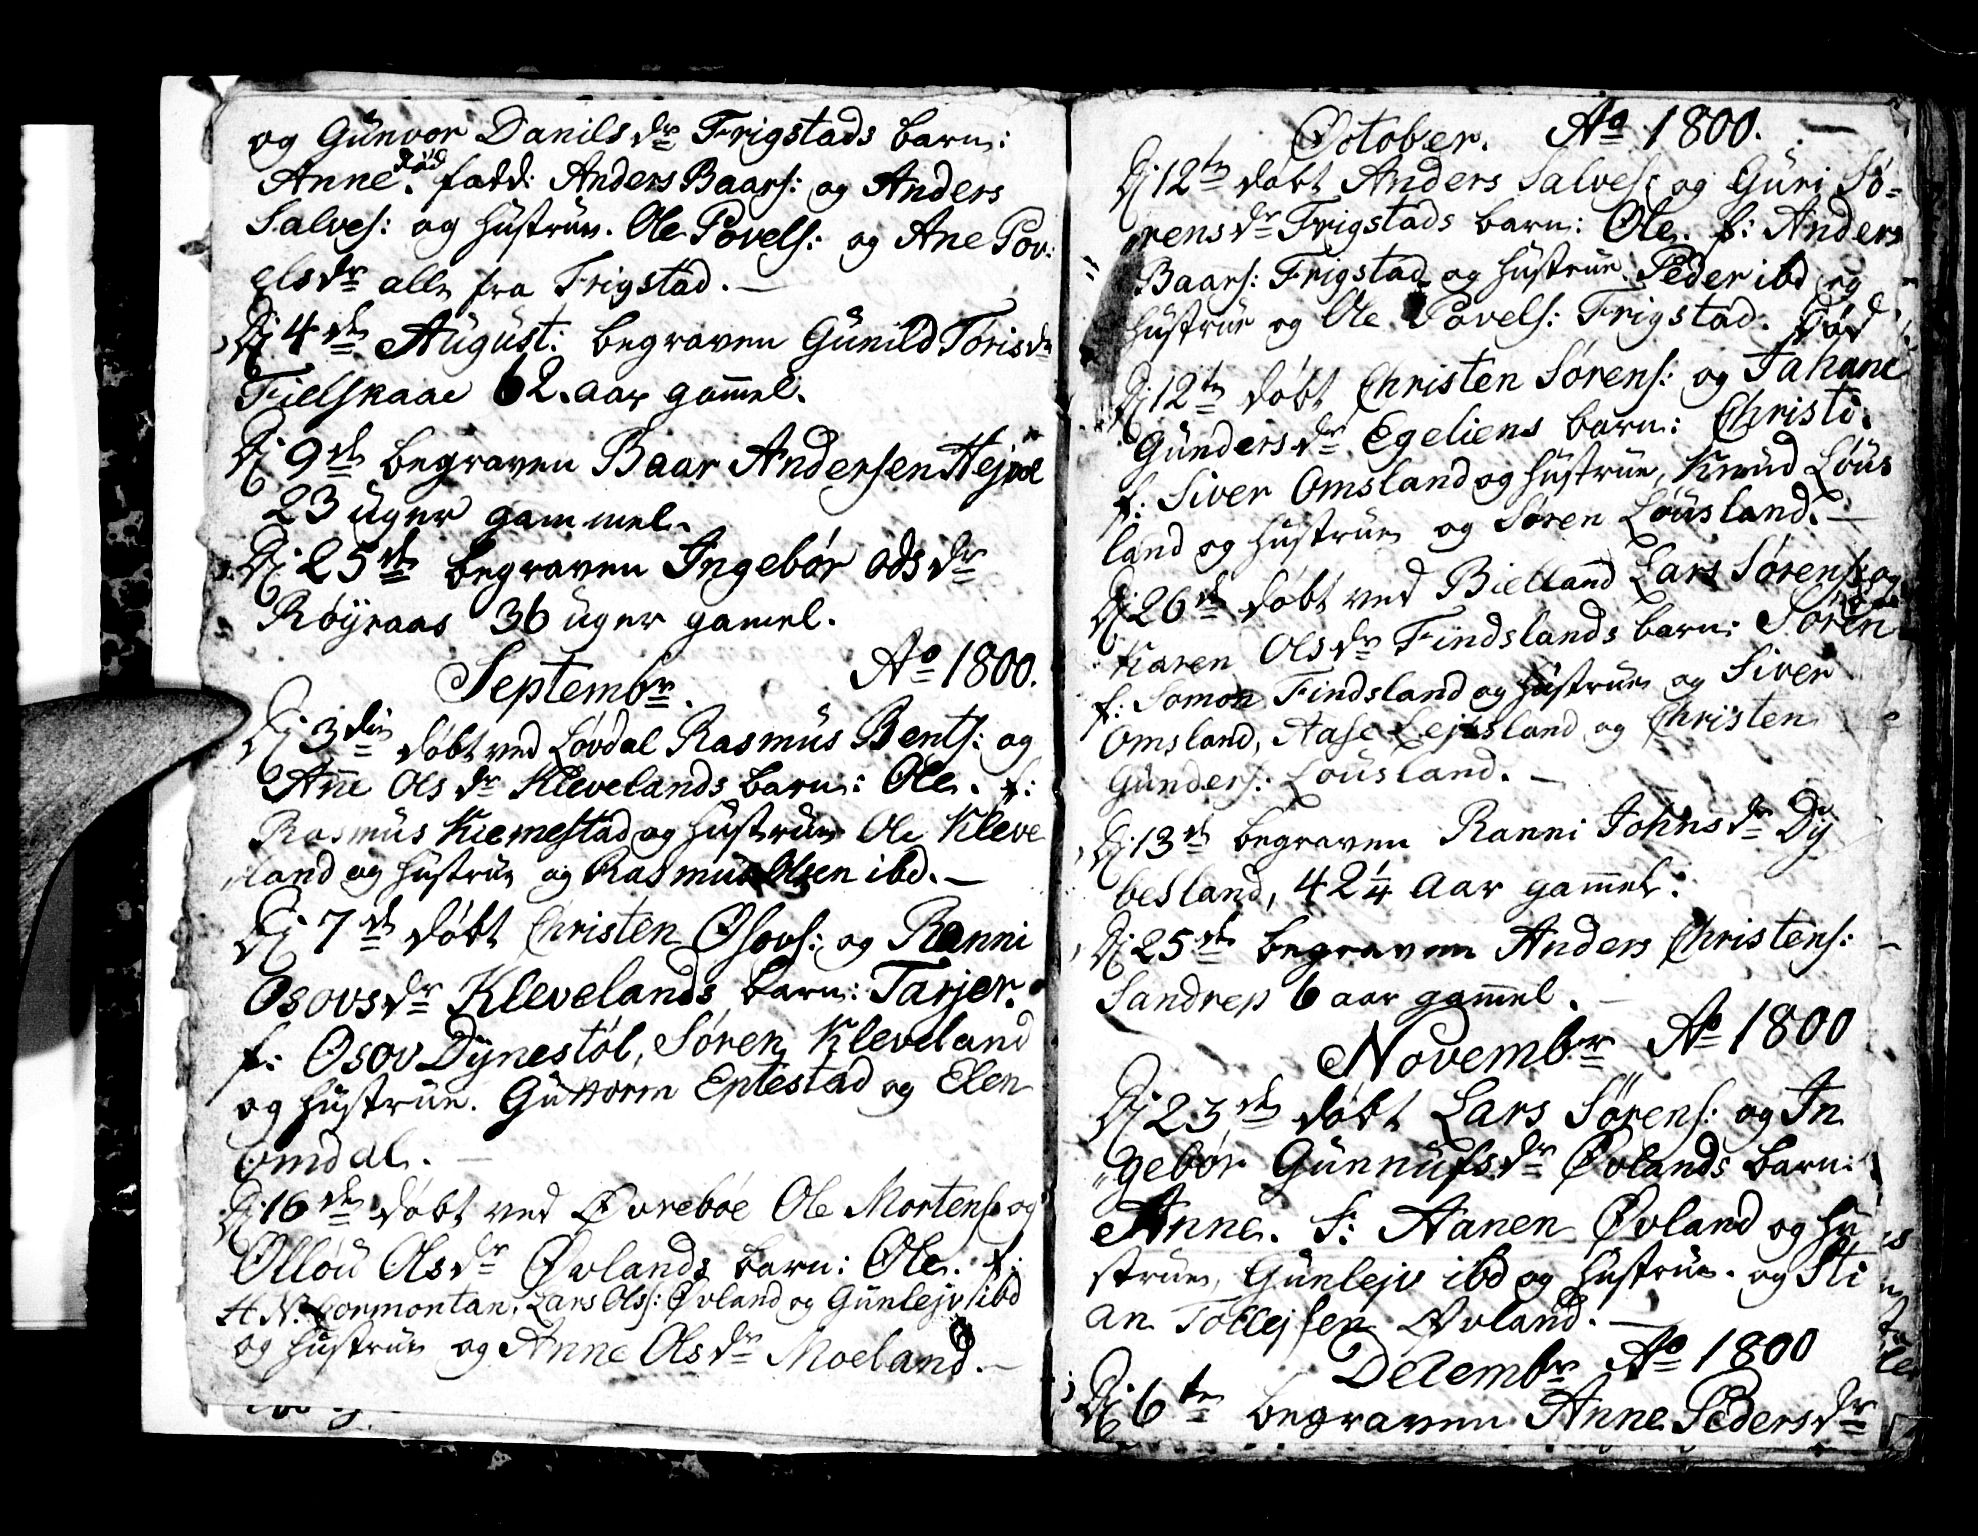 og Gunvor Danils dr Frigstads barn:
død
Anne. fadd: Anders Baars: og Anders
Salves: og hustrue. Ole Povels: og Ane Pov:
els dr alle fra Frigstad. —
Dj 4de August: begraven Gunild Torisdr
Fielskaae 62. aar gamel.
Dj 9de begraven Baar Andersen Hejvol
23 uger gammel.
Dj 25de begraven Ingebór Ods dr
Róÿraas 36 uger gamel.
Septembr. Ao 1800.
Dj 3die dóbt ved Lóvdal Rasmus Bents: og
Ane Ols dr Klevelands barn: Ole. f:
Rasmus Kiemestad og hustrue Ole Kleve
land og hustrue og Rasmus Olsen ibd. —
Dj 7de dóbt Christen Osovs: og Ranni
Osovs dr Klevelands barn: Tarjer.
f: Osov Dÿnestól, Sóren Kleveland
og hustrue. Guttorm Eptestad og Elen
Omdal. —
Dj 16de dóbt ved Øvrebóe Ole Mortens: og
Ólló​u Ols dr Øvlands barn: Ole. f:
H. N. Cormontan, Lars Ols: Øvland og Gunlejv ibd
og hustrue og Anne Ols dr Moeland. —
October. Ao 1800. —
Dj 12te dóbt Anders Salves: og Guri Só=
rens dr Frigstads barn: Ole. f: Anders
Baars: Frigstad og hustrue. Peder ibd og
hustrue og Ole Povels: Frigstad. Død
Dj 12te dóbt Christen Sórens: og Jahane
Gunders dr Egeliens barn: Christi.
f: Siver Omsland og hustrue, Knud Lóus
land og hustrue og Sóren Lóusland. —
Dj 26de dóbt ved Bielland Lars Sórens: og
Karen Ols dr Findslands barn: Sóren
f: Somon Findsland og hustrue og Siver
Omsland, Aase Lejlsland og Christen
Gunders: Lousland. —
Dj 13de begraven Ranni Johns dr Dÿ
besland, 42 1/4 Aar gamel.
Dj 25de begraven Anders Christens:
Sandrep 6 aar gamel. —
Novembr Ao 1800
Dj 23de dóbt Lars Sórens: og In
gebór Gunnufs dr Øvlands barn:
Anne. f: Aanen Øvland og hu
strue, Gunlejv ibd og hustrue. og Sti
an Tollejsen Øvland. —
Decembr Ao 1800
Dj 6te begraven Anne Peders dr